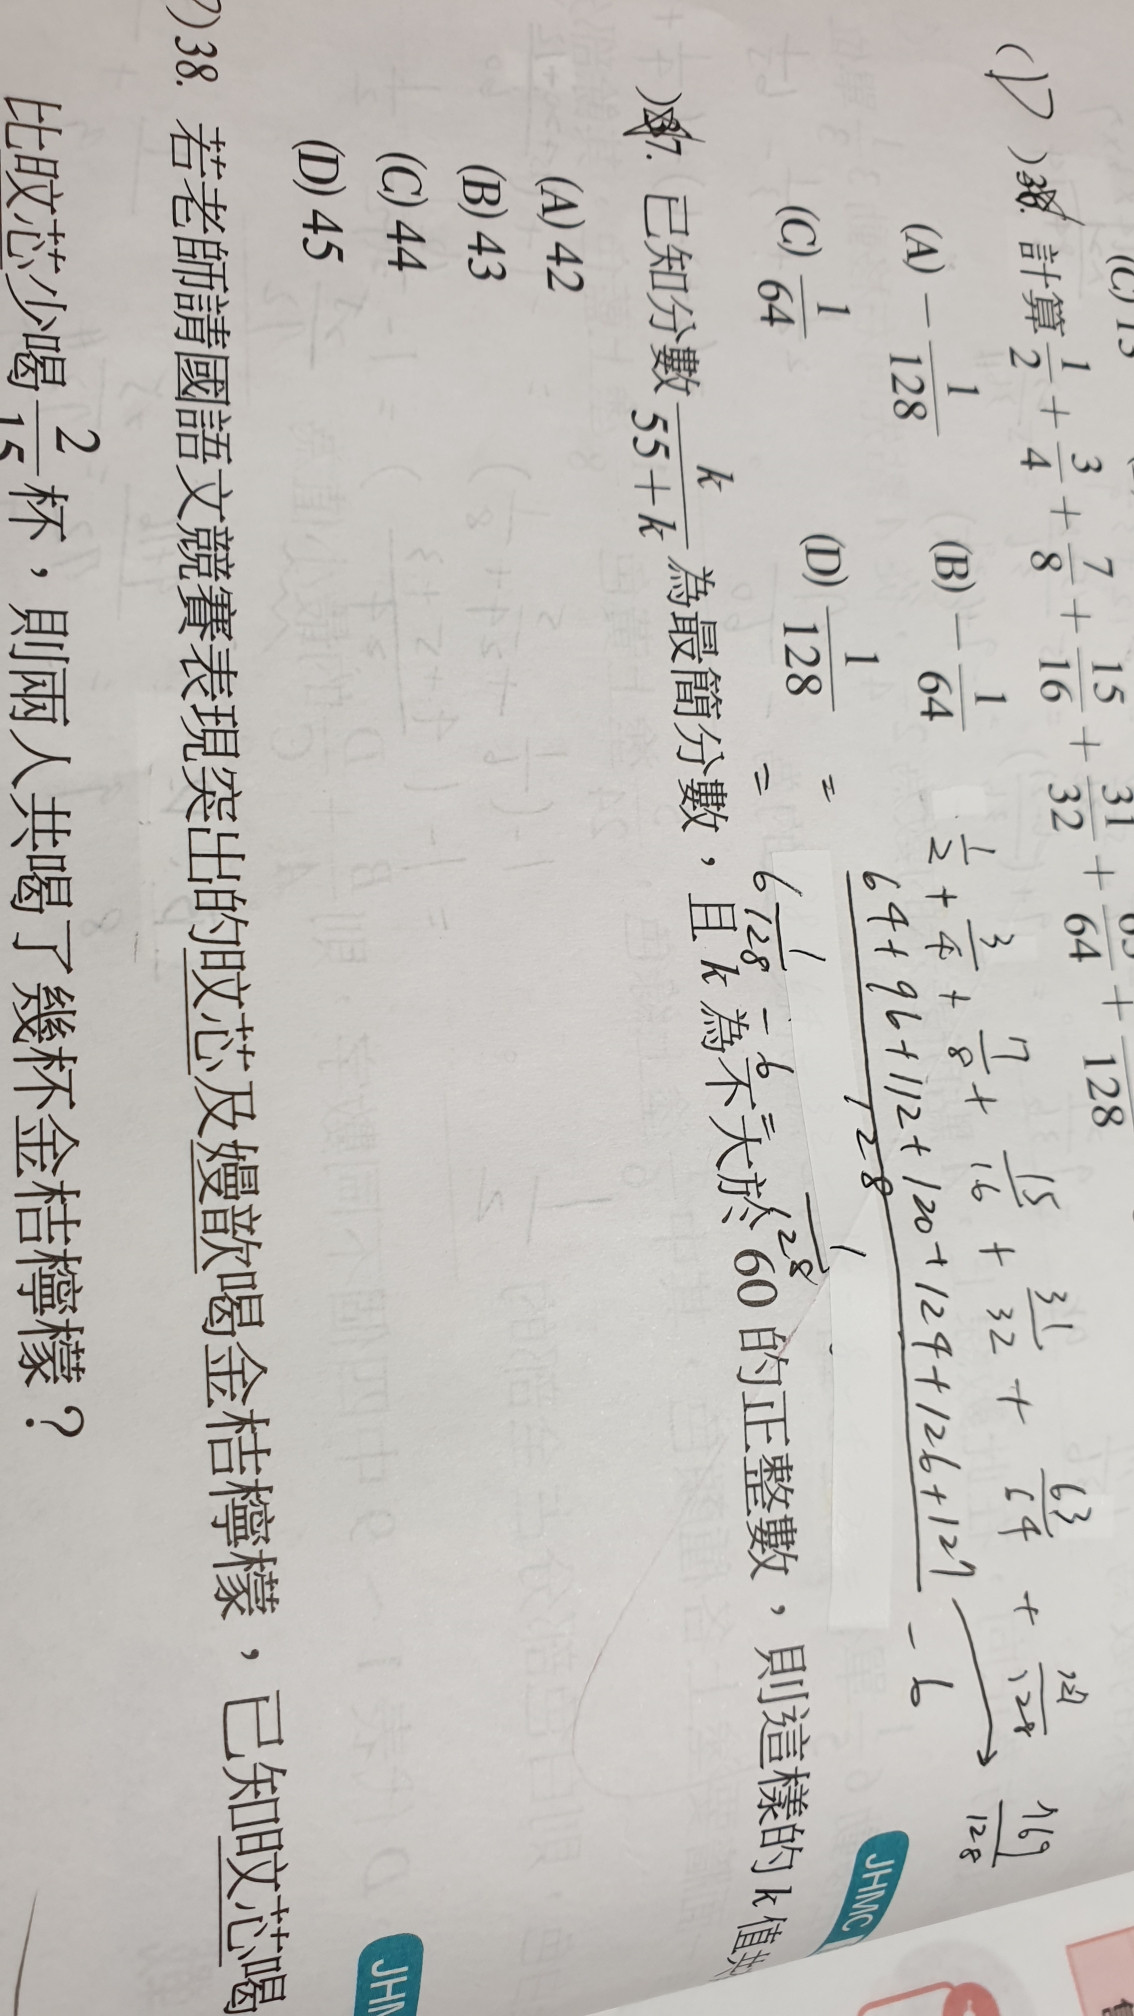 (C) 13
(D) 36. 計算 1/2 + 3/4 + 7/8 + 15/16 + 31/32 + 63/64 + /128
(A) − 1/128 (B) − 1/64
(C) 1/64 (D) 1/128
1/2 + 3/4 + 7/8 + 15/16 + 31/32 + 63/64 + 127/128
= 64+96+112+120+124+126+127 / 128 − 6 → 769/128
= 6 1/128 − 6 = 1/128
JHMC
)37. 已知分數 k/55+k 為最簡分數,且 k 為不大於 60 的正整數,則這樣的 k 值共
(A) 42
(B) 43
(C) 44
(D) 45
JHM
)38. 若老師請國語文競賽表現突出的旼芯及嫚歆喝金桔檸檬,已知旼芯喝
比旼芯少喝 2/15 杯,則兩人共喝了幾杯金桔檸檬?